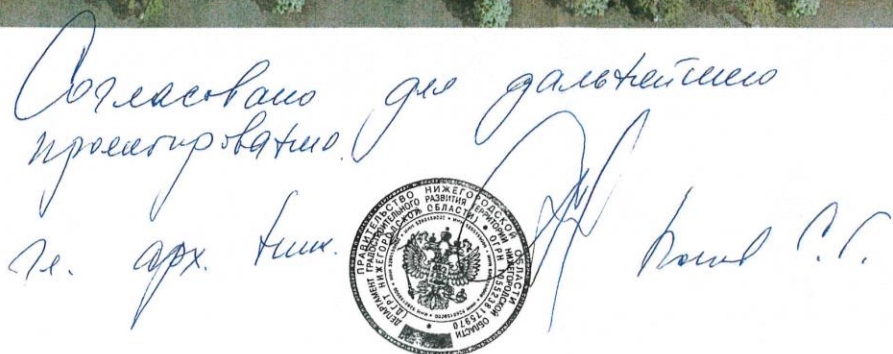 Согласовано для дальнейшего
проектирования.
Гл. арх. С. Г.
ПРАВИТЕЛЬСТВО НИЖЕГОРОДСКОЙ ОБЛАСТИ
ДЕПАРТАМЕНТ ГРАДОСТРОИТЕЛЬНОГО РАЗВИТИЯ ТЕРРИТОРИИ НИЖЕГОРОДСКОЙ ОБЛАСТИ
НИЖЕГОРОДСКОЙ ОБЛАСТИ) • ОГРН